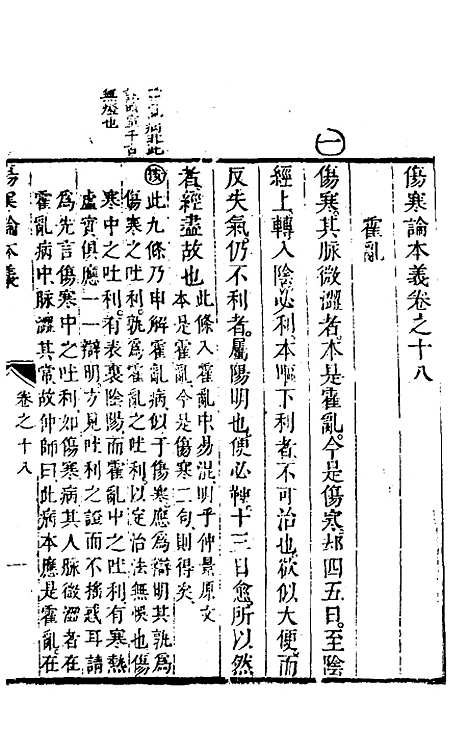 傷寒論本義卷之十八
霍亂
一
傷寒。其脉微澀者。本是霍亂。今是傷寒。却四五日。至陰
經上轉入陰。必利。本嘔下利者。不可治也。欲似大便。而
反失氣。仍不利者。屬陽明也。便必鞕。十三日愈。所以然
者。經盡故也
此條入霍亂中。易混。明乎仲景原文
本是霍亂。今是傷寒二句。則得矣。
此九條。乃申解霍亂病。似于傷寒。應為辯明。其孰為
傷寒之吐利。孰為霍亂之吐利。以定治法無悞也。傷
寒中之吐利。有表裏陰陽。而霍亂中之吐利。有寒熱
虛實俱應一一辯明。方見吐利之證而不搖惑耳。請
為先言傷寒中之吐利。如傷寒病。其人脉微澀者。在
霍亂病中。脉澀其常。故仲師曰。此病本應是霍亂。在
病非此
千古
無疑也
傷寒論本義
卷之十八
一